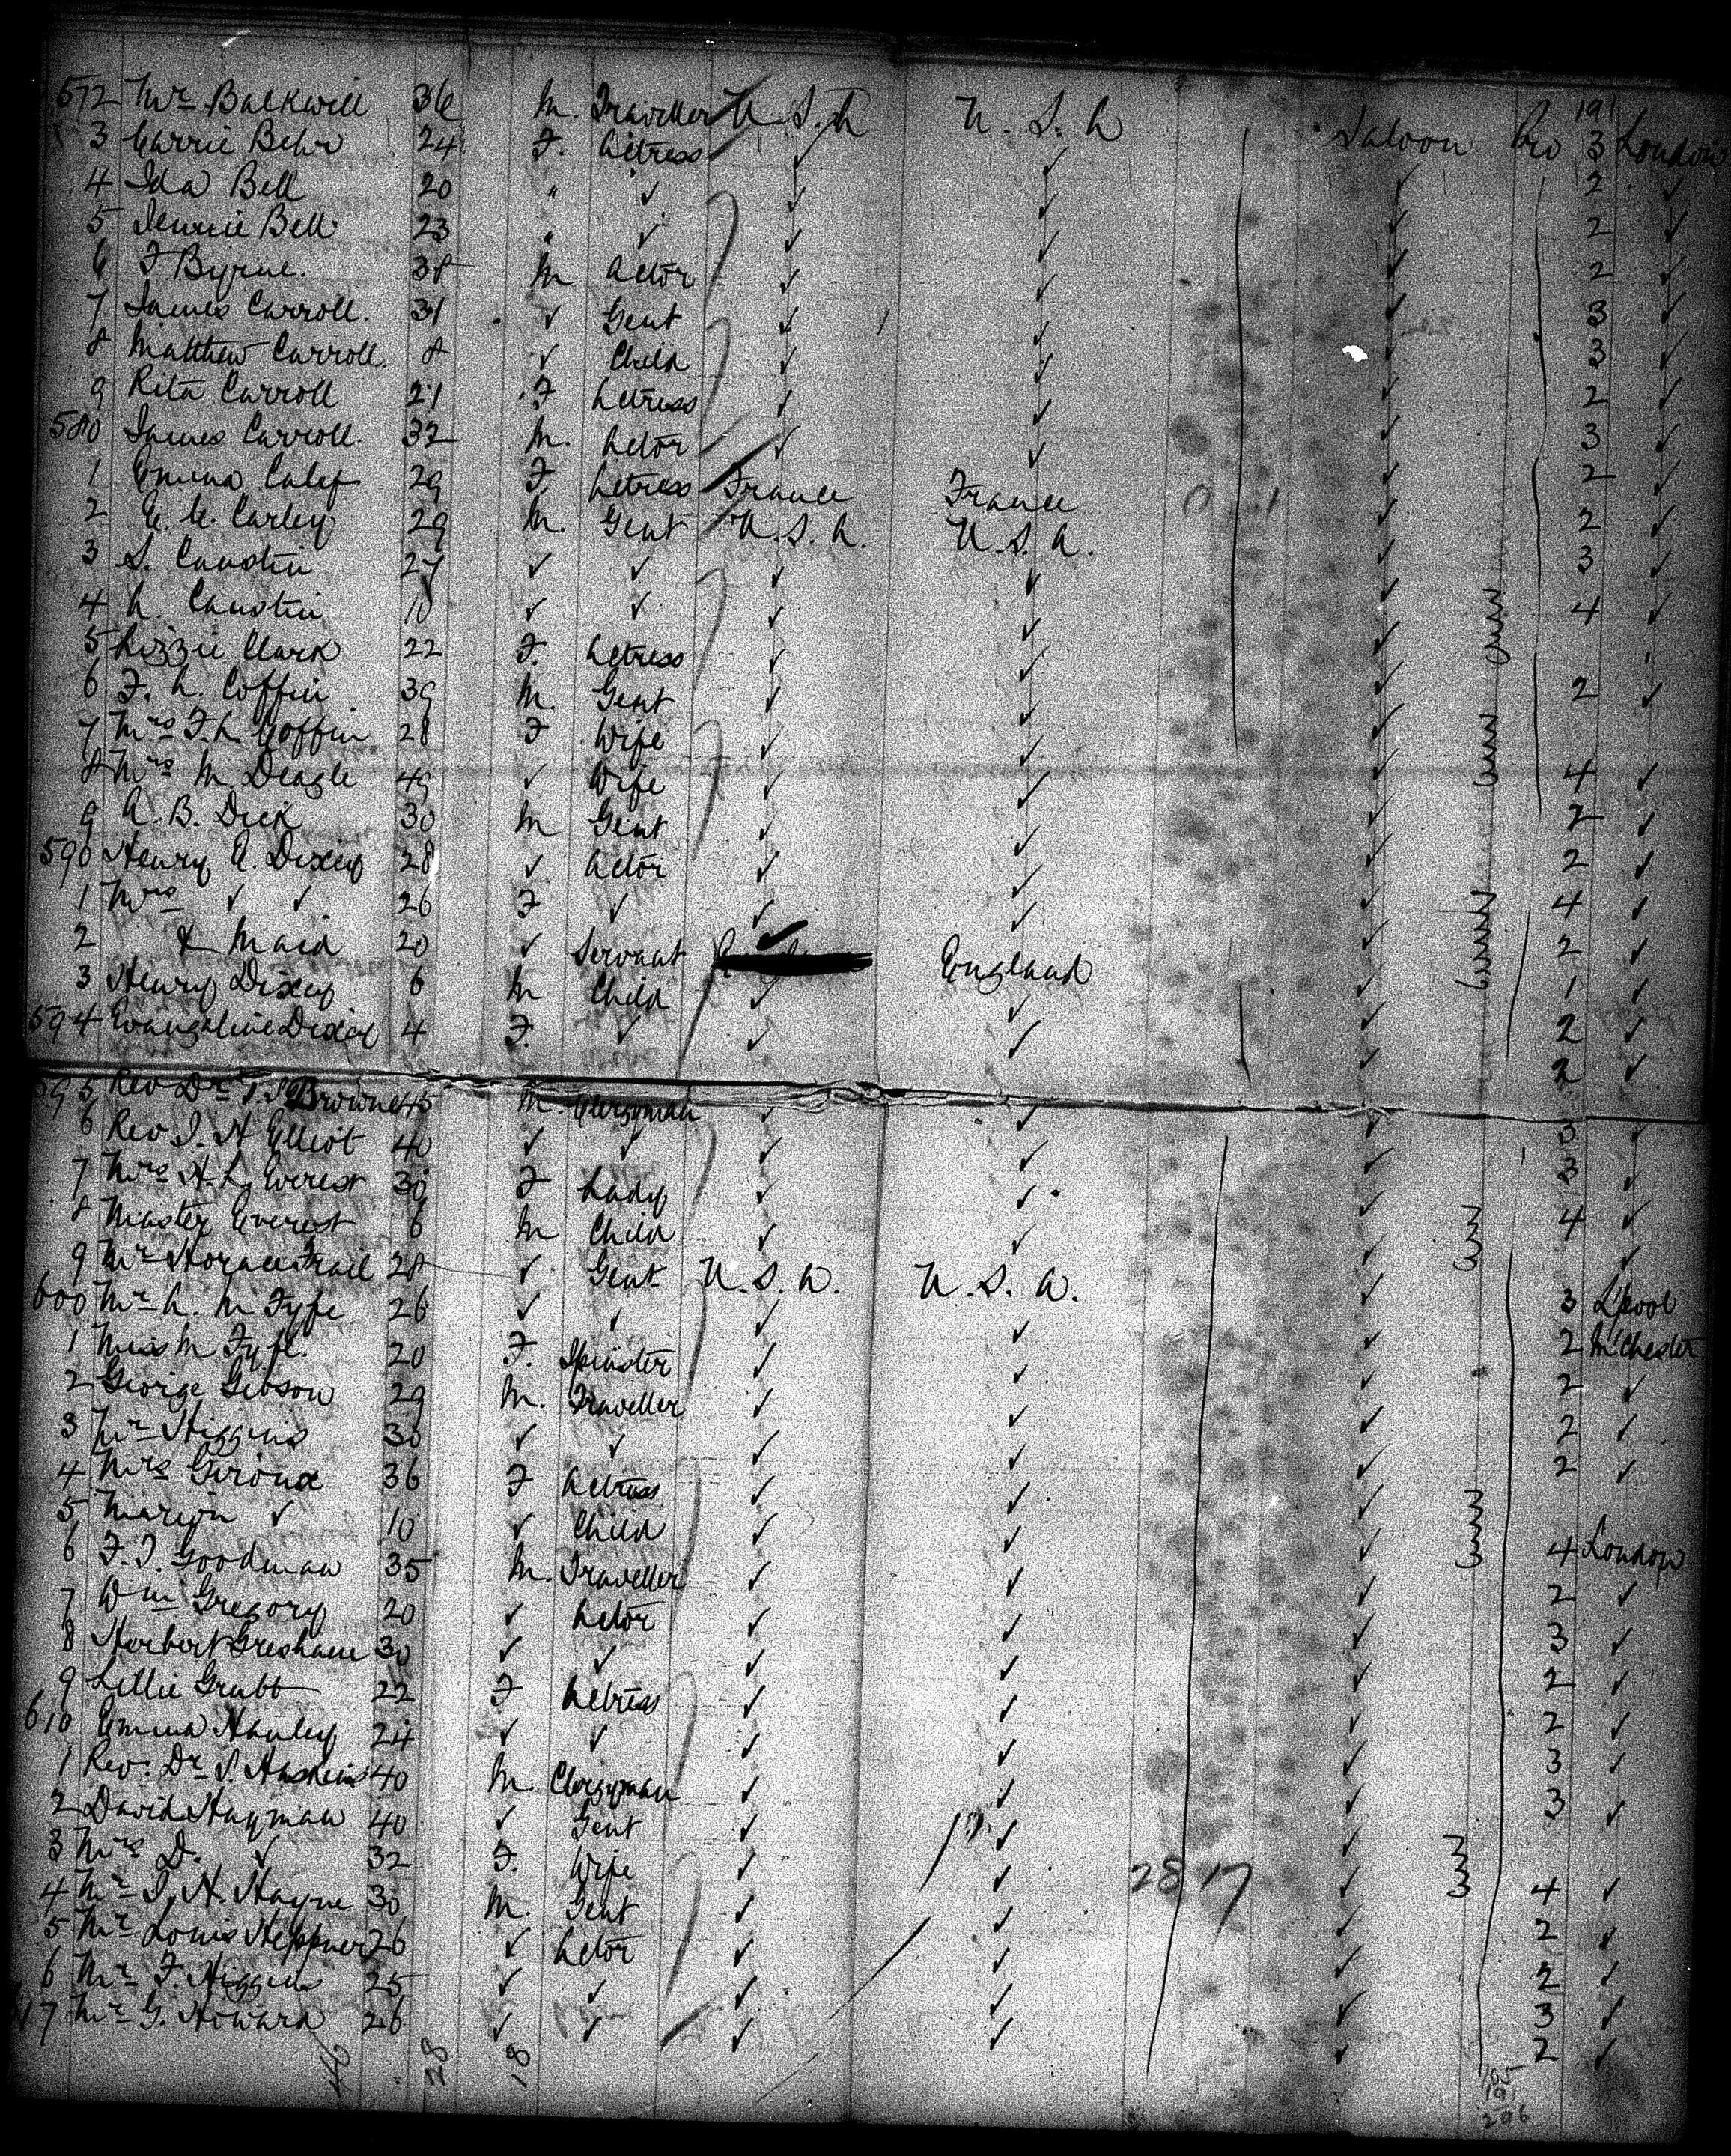 191
572 Mr. Balkwill 36 M. Traveller U.S.A U.S.A Saloon Pro 3 London
3 Carrie Behr 24 F. Actress ✓ ✓ ✓ 2 ✓
4 Ida Bell 20 " ✓ ✓ ✓ ✓ 2 ✓
5 Jennie Bell 23 " ✓ ✓ ✓ ✓ 2 ✓
6 F Byrne. 38 M Actor ✓ ✓ ✓ 3 ✓
7 James Carroll. 31 ✓ Gent ✓ ✓ ✓ 3 ✓
8 Matthew Carroll. 8 ✓ Child ✓ ✓ ✓ 2 ✓
9 Rita Carroll 21 F Actress ✓ ✓ ✓ 3 ✓
580 James Carroll. 32 M. Actor ✓ ✓ ✓ 2 ✓
1 Emma Calef 29 F Actress France France ✓ 2 ✓
2 E. E. Carley 29 M. Gent U.S.A. U.S.A. ✓ 3 ✓
3 S. Caustin 27 ✓ ✓ ✓ ✓ ✓ 4 ✓
4 A. Caustin 10 ✓ ✓ ✓ ✓ ✓
5 Lizzie Clark 22 F. Actress ✓ ✓ ✓ 2 ✓
6 F. A. Coffin 39 M. Gent ✓ ✓ ✓ 4 ✓
7 Mrs F. A. Coffin 28 F Wife ✓ ✓ ✓
8 Mrs M. Deagle 49 ✓ Wife ✓ ✓ ✓ 2 ✓
9 A. B. Dick 30 M Gent ✓ ✓ ✓ 2 ✓
590 Henry E. Dixey 28 ✓ Actor ✓ ✓ ✓ 4 ✓
1 Mrs ✓ ✓ 26 F ✓ ✓ ✓ ✓ 2 ✓
2 & Maid 20 ✓ Servant ✓ England ✓ 1 ✓
3 Henry Dixey 6 M Child ✓ ✓ ✓ 2 ✓
594 Evangaline Dixey 4 F. ✓ ✓ ✓ ✓ 2 ✓
595 Rev Dr Browne 45 M. Clergyman ✓ ✓ ✓ 3 ✓
6 Rev J. H Elliot 40 ✓ ✓ ✓ ✓ ✓ 3 ✓
7 Mrs H. L. Everest 30 F Lady ✓ ✓ ✓ 4 ✓
8 Master Everest 6 M Child ✓ ✓ ✓ ✓
9 Mr Horace Frail 28 ✓ Gent U.S.A. U.S.A. ✓ 3 Lpool
600 Mr A. M Fyfe 26 ✓ ✓ ✓ ✓ ✓ 2 MChester
1 Miss M Fyfe. 20 F. Spinster ✓ ✓ ✓ 2 ✓
2 George Gibson 29 M. Traveller ✓ ✓ ✓ 2 ✓
3 Mr Higgins 30 ✓ ✓ ✓ ✓ ✓ 2 ✓
4 Mrs Giroux 36 F Actress ✓ ✓ ✓
5 Marion ✓ 10 ✓ Child ✓ ✓ ✓ 4 London
6 F. J. Goodman 35 M. Traveller ✓ ✓ ✓ 2 ✓
7 Wm Gregory 20 ✓ Actor ✓ ✓ ✓ 3 ✓
8 Herbert Gresham 30 ✓ ✓ ✓ ✓ ✓ 2 ✓
9 Lillie Grubb 22 F Actress ✓ ✓ ✓ 2 ✓
610 Emma Hanley 24 ✓ ✓ ✓ ✓ ✓ 3 ✓
1 Rev. Dr J. Haskins 40 M. Clergyman ✓ ✓ ✓ 3 ✓
2 David Hayman 40 ✓ Gent ✓ ✓ ✓
3 Mrs D. ✓ 32 F. Wife ✓ ✓ 28 17 ✓ 4 ✓
4 Mr J. H. Hayne 30 M. Gent ✓ ✓ ✓ 2 ✓
5 Mr Louis Heppner 26 ✓ Actor ✓ ✓ ✓ 2 ✓
6 Mr F. Higgins 25 ✓ ✓ ✓ ✓ ✓ 3 ✓
617 Mr G. Howard 26 ✓ ✓ ✓ ✓ ✓ 2 ✓
46 28 18